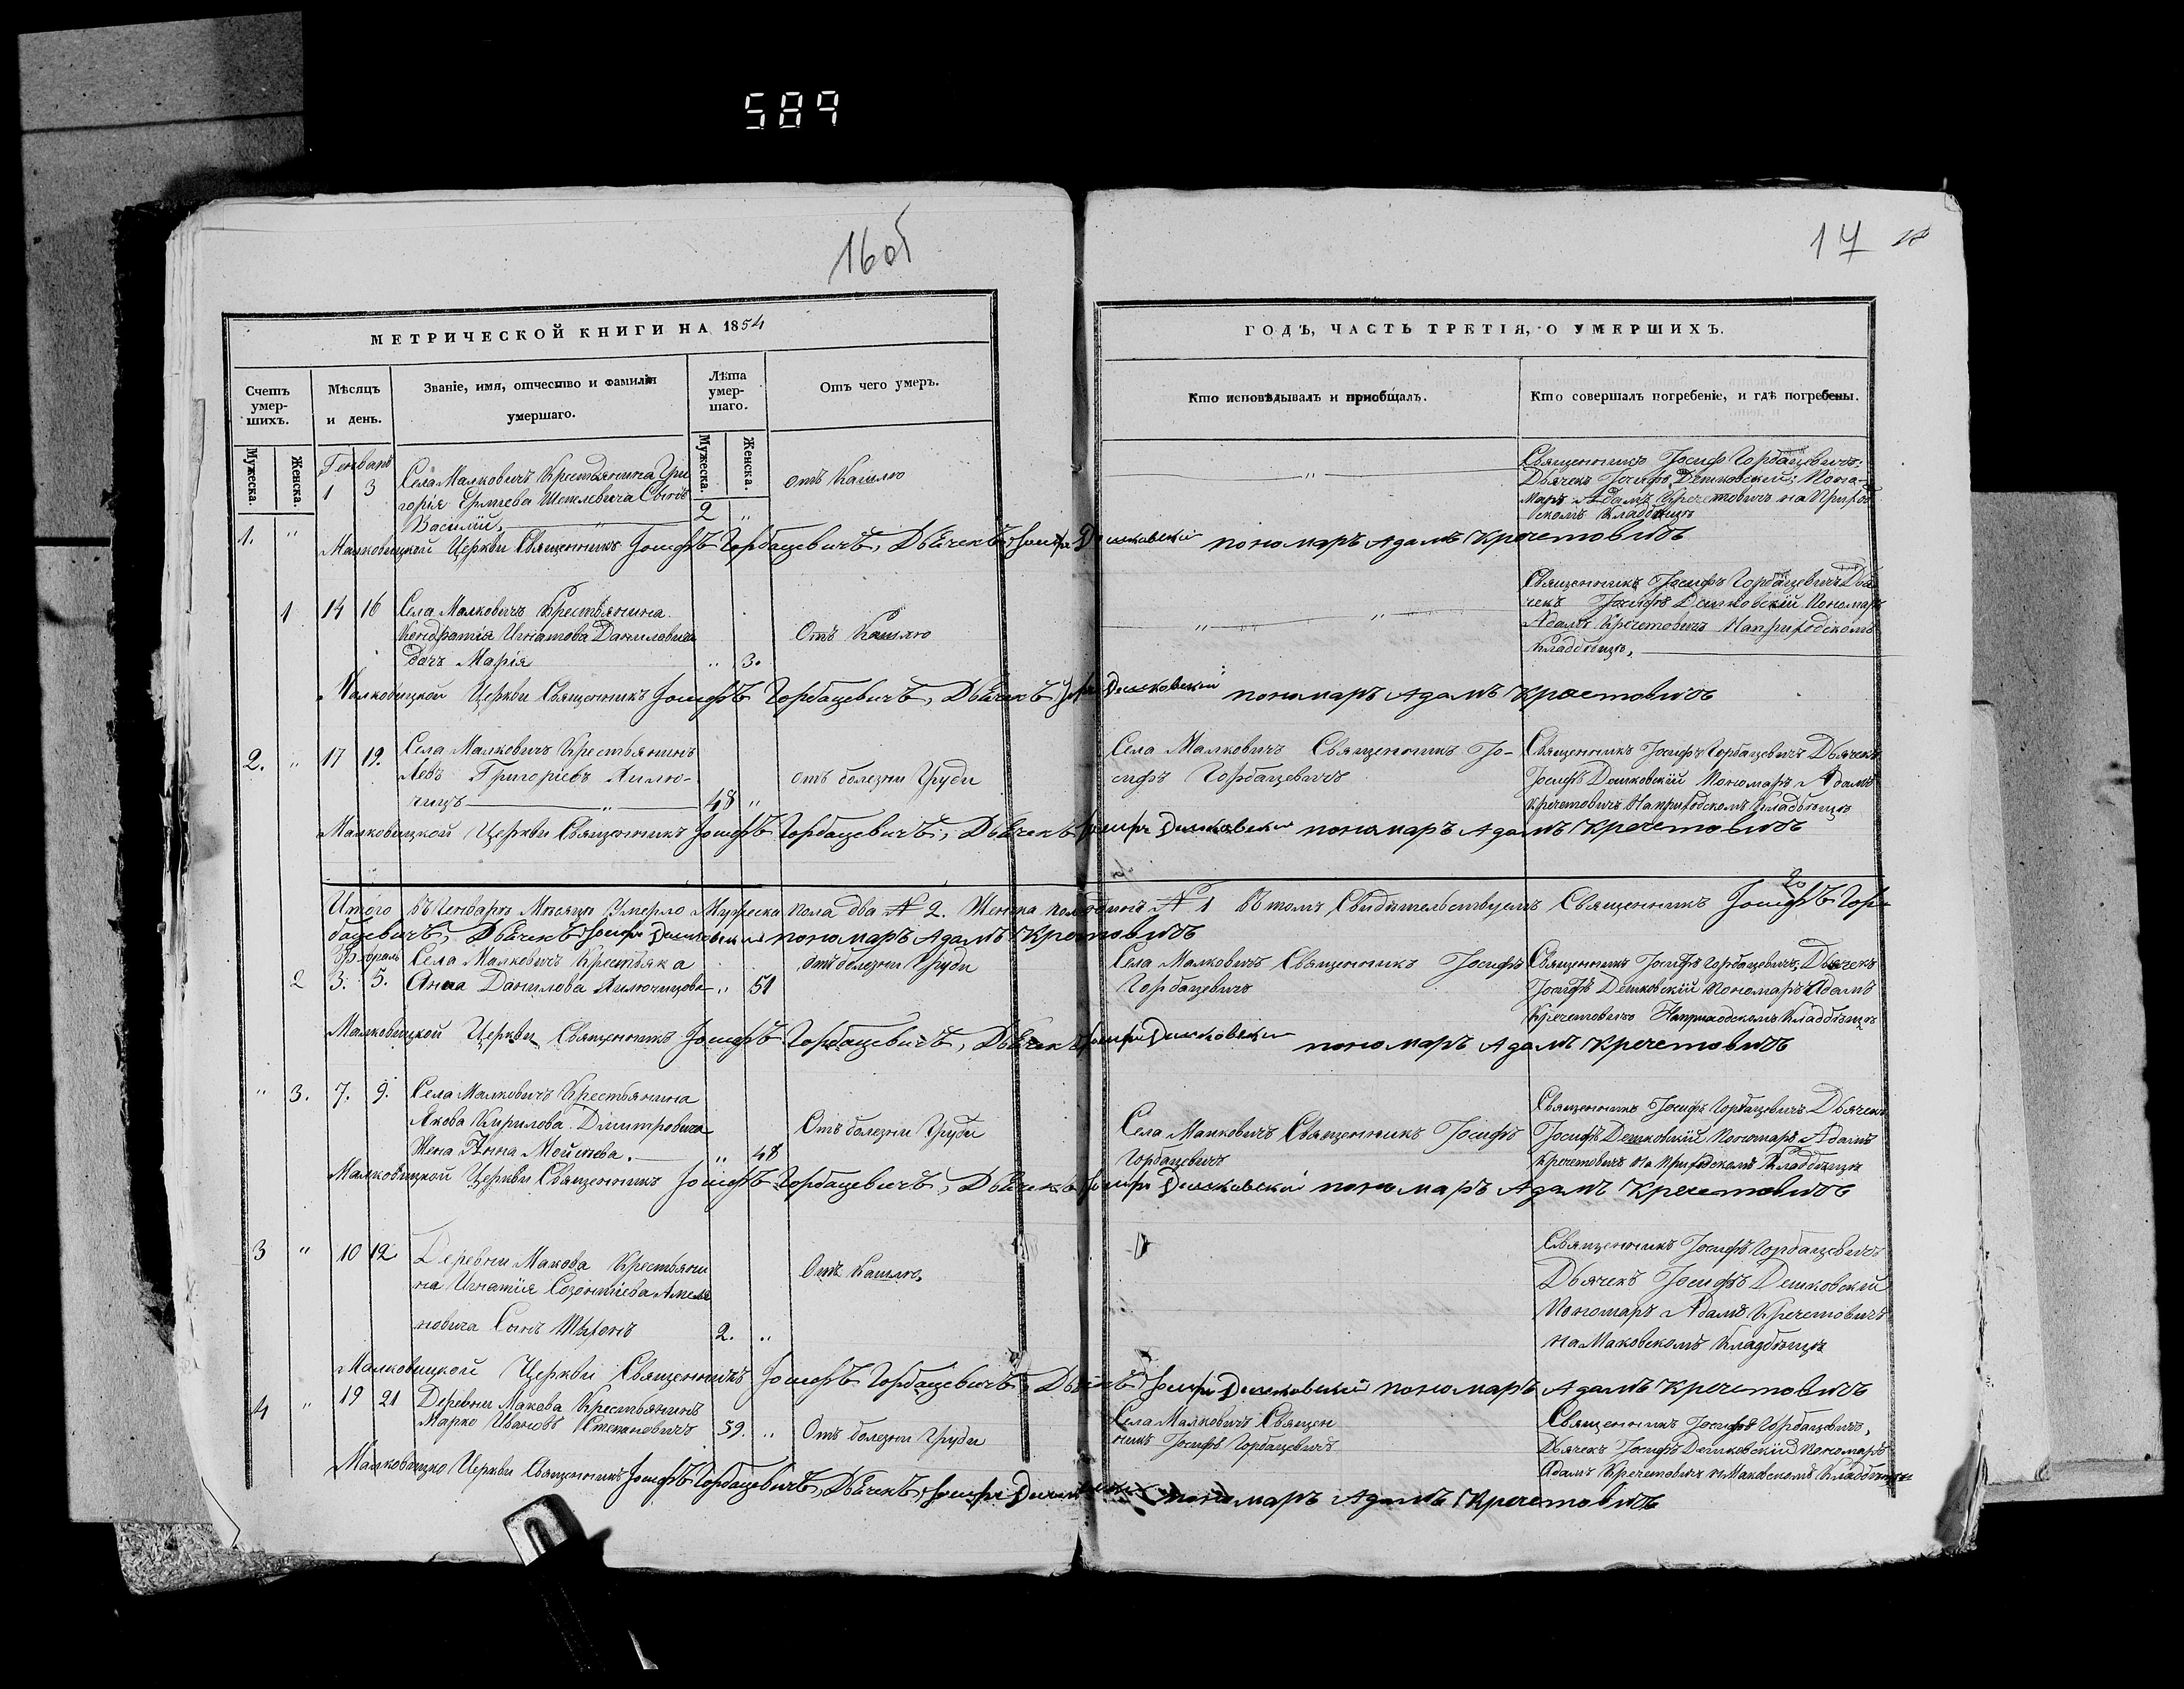 589
16 об
17
МЕТРИЧЕСКОЙ КНИГИ НА 1854
ГОДЪ, ЧАСТЬ ТРЕТІЯ, О УМЕРШИХЪ.
Счетъ умер-
шихъ.
Мѣсяцъ
и день.
Званіе, имя, отчество и фамилія
умершаго.
Лѣта
умер-
шаго.
Отъ чего умеръ.
Кто исповѣдывалъ и приобщалъ.
Кто совершалъ погребеніе, и гдѣ погребены.
Мужеска.
Женска.
Мужеска.
Женска.
Генварь
1 3
Села Малковичъ Крестьянина Гри
горія Ермѣева Шепелевича Сынъ
Василій
2 "
отъ Кашлю
"
Священникъ Іосифъ Горбацевичъ:
Дьячекъ Іосифъ Дешковскій: Поно-
маръ Адамъ Кречетовичъ на Приход
скомъ Кладбищѣ
1. "
Малковицкой Церкви Священникъ Іосифъ Горбацевичъ, Дьячекъ Іосифъ Дешковскій пономаръ Адамъ Кречетовичъ
1 14 16
Села Малковичъ Крестьянина
Кондратія Игнатова Даниловича
дочъ Марія
" 3.
Отъ Кашлю
" "
Священникъ Іосифъ Горбацевичъ Дья
чекъ Іосифъ Дешковскій Пономаръ
Адамъ Кречетовичъ На приходскомъ
Кладбищѣ,
Малковицкой Церкви Священникъ Іосифъ Горбацевичъ, Дьячекъ Іосифъ Дешковскій пономаръ Адамъ Кречетовичъ
2. " 17 19.
Села Малковичъ Крестьянинъ
Левъ Григоріевъ Лилю-
чицъ "
48 "
отъ болезни Груди
Села Малковичъ Священникъ Іо-
сифъ Горбацевичъ
Священникъ Іосифъ Горбацевичъ Дьячекъ
Іосифъ Дешковскій Пономаръ Адамъ
Кречетовичъ На приходскомъ Кладбищѣ
Малковицкой Церкви Священникъ Іосифъ Горбацевичъ, Дьячекъ Іосифъ Дешковскій пономаръ Адамъ Кречетовичъ
Итого въ Генварѣ Мѣсяцѣ Умерло Мужеска пола два № 2. Женска пола одна № 1 Въ томъ Свидѣтельствуемъ Священникъ Іосифъ Гор-
бацевичъ, Дьячекъ Іосифъ Дешковскій пономаръ Адамъ Кречетовичъ
Февраль
2 3. 5.
Села Малковичъ Крестьянка
Анна Данилова Лилючицова
" 51
отъ болезни Груди
Села Малковичъ Священникъ Іосифъ
Горбацевичъ
Священникъ Іосифъ Горбацевичъ, Дьячекъ
Іосифъ Дешковскій Пономаръ Адамъ
Кречетовичъ На приходскомъ Кладбищѣ
Малковицкой Церкви Священникъ Іосифъ Горбацевичъ, Дьячекъ Іосифъ Дешковскій пономаръ Адамъ Кречетовичъ
" 3. 7. 9.
Села Малковичъ Крестьянина
Якова Кирилова Димитровича
Жена Анна Мойсѣева.
" 48
Отъ болезни Груди
Села Малковичъ Священникъ Іосифъ
Горбацевичъ
Священникъ Іосифъ Горбацевичъ Дьячекъ
Іосифъ Дешковскій Пономаръ Адамъ
Кречетовичъ На Приходскомъ Кладбищѣ
Малковицкой Церкви Священникъ Іосифъ Горбацевичъ, Дьячекъ Іосифъ Дешковскій пономаръ Адамъ Кречетовичъ
3 " 10 12
Деревни Макова Крестьяни
на Игнатія Созонтіева Амеля
новича Сынъ Тихонъ
2. "
Отъ Кашлю
Священникъ Іосифъ Горбацевичъ
Дьячекъ Іосифъ Дешковскій
Пономаръ Адамъ Кречетовичъ
на Маковскомъ Кладбищѣ
Малковицкой Церкви Священникъ Іосифъ Горбацевичъ, Дьячекъ Іосифъ Дешковскій пономаръ Адамъ Кречетовичъ
4 " 19 21
Деревни Макова Крестьянинъ
Марко Ивановъ Степановичъ
59. "
Отъ болезни Груди
Села Малковичъ Священ
никъ Іосифъ Горбацевичъ
Священникъ Іосифъ Горбацевичъ,
Дьячекъ Іосифъ Дешковскій Пономаръ
Адамъ Кречетовичъ н Маковскомъ Кладбищѣ
Малковицко Церкви Священникъ Іосифъ Горбацевичъ, Дьячекъ Іосифъ Дешковскій пономаръ Адамъ Кречетовичъ